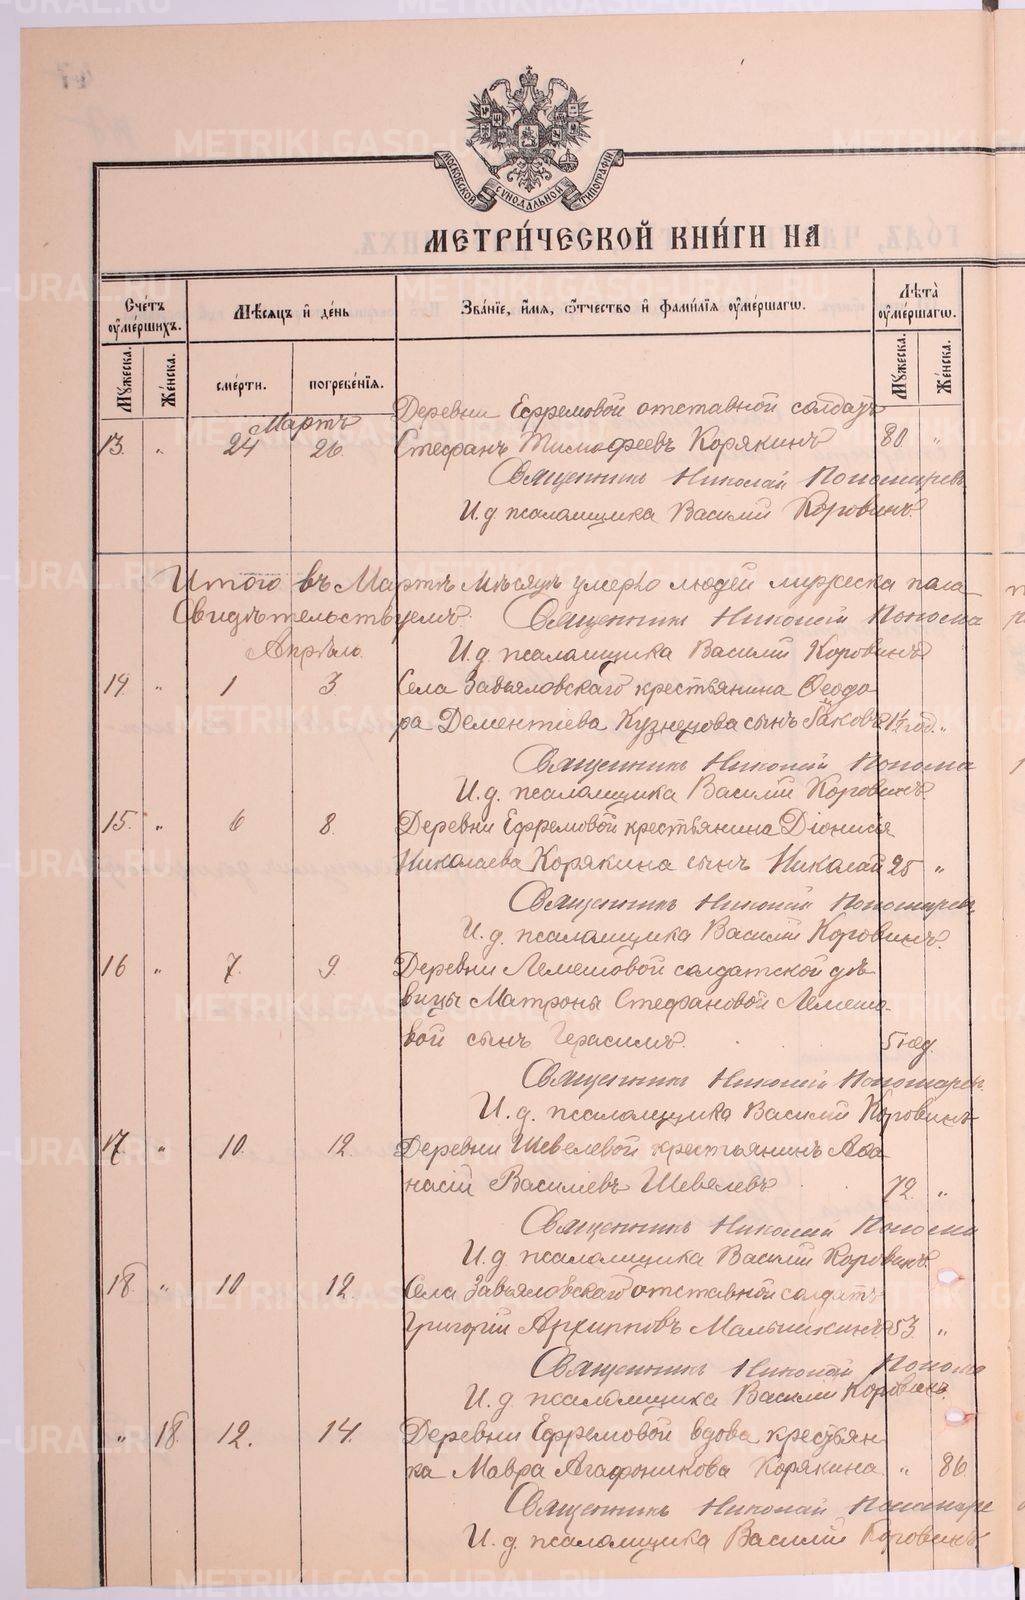 МОСКОВСКОЙ СѴНОДАЛЬНОЙ ТИПОГРАФІИ
МЕТРИ́ЧЕСКОЙ КНИ́ГИ НА
Сче́тъ ᲂу҆ме́ршихъ.
Мѣ́сяцъ и҆ де́нь
Зва́нїе, и҆́мя, ѻ҆́тчество и҆ фами́лїя ᲂу҆ме́ршагѡ.
Лѣта̀ ᲂу҆ме́ршагѡ.
Мꙋ́жеска.
Же́нска.
сме́рти.
погребе́нїѧ.
Мꙋ́жеска.
Же́нска.
Мартъ
Деревни Ефремовой отставной солдатъ
13. " 24 26. Стефанъ Тимофеевъ Корякинъ 80 "
Священникъ Николай Пономаревъ
И. д. псаломщика Василій Коровинъ.
Итого въ Мартѣ мѣсяцѣ умерло людей мужеска пола
Свидѣтельствуемъ: Священникъ Николай Понома
Апрѣль. И. д. псаломщика Василій Коровинъ
14. " 1 3. Села Завьяловскаго крестьянина Ѳеодо-
ра Дементіева Кузнецова сынъ Іаковъ 1½ год. "
Священникъ Николай Понома
И. д. псаломщика Василій Коровинъ
15. " 6 8. Деревни Ефремовой крестьянина Діонисія
Николаева Корякина сынъ Николай 25 "
Священникъ Николай Пономарев
И. д. псаломщика Василій Коровинъ.
16 " 7. 9. Деревни Лемешовой солдатской дѣ-
вицы Матроны Стефановой Лемешо-
вой сынъ Герасимъ. 5 нед.
Священникъ Николай Пономарев
И. д. псаломщика Василій Коровинъ
17. " 10. 12. Деревни Шевелевой крестьянинъ Аѳа-
насій Василіевъ Шевелевъ 72. "
Священникъ Николай Понома
И. д. псаломщика Василій Коровинъ.
18. " 10 12. Села Завьяловскаго отставной солдатъ
Григорій Архипповъ Мальчикинъ 53. "
Священникъ Николай Понома
И. д. псаломщика Василій Коровинъ.
" 18. 12. 14. Деревни Ефремовой вдова крестьян-
ка Мавра Агафоникова Корякина. " 86.
Священникъ Николай Пономаре
И. д. псаломщика Василій Коровинъ
METRIKI.GASO-URAL.RU